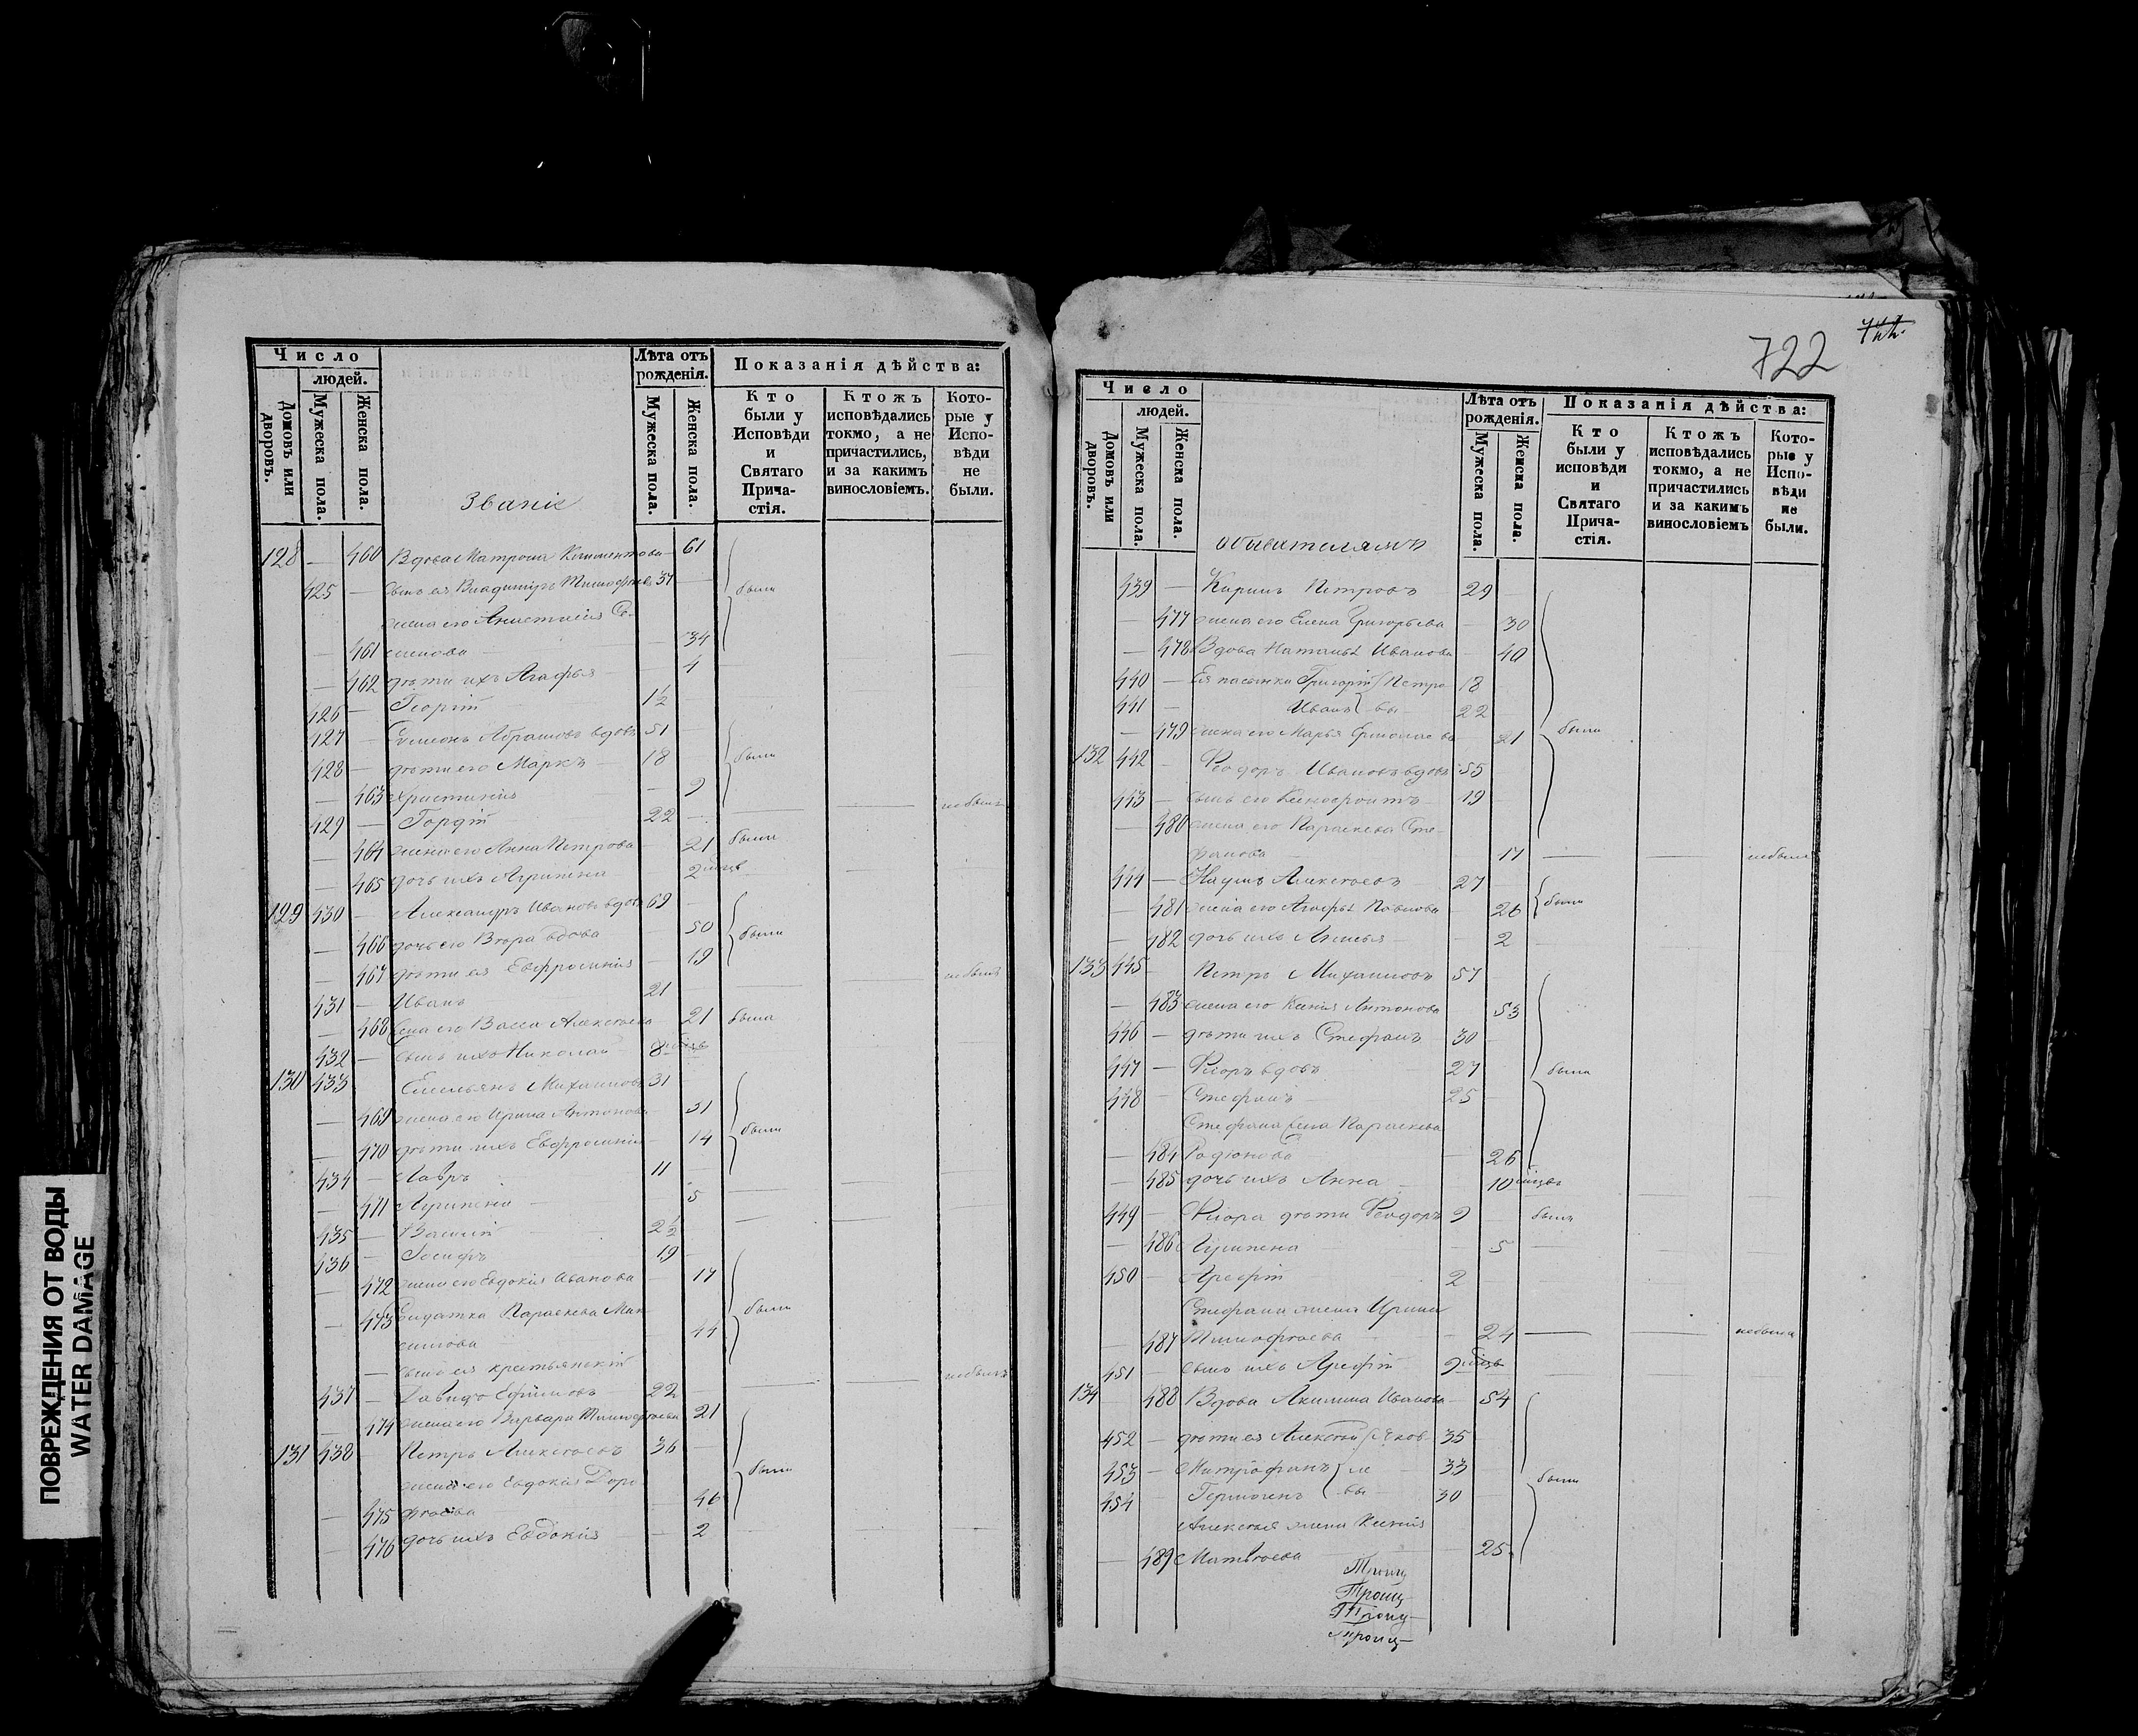 ПОВРЕЖДЕНИЯ ОТ ВОДЫ
WATER DAMAGE
Число
людей.
Домовъ или дворовъ.
Мужеска пола.
Женска пола.
Званіе
Лѣта отъ рожденія.
Мужеска пола.
Женска пола.
Показанія дѣйства:
Кто были у Исповѣди и Святаго Прича-стія.
Ктожъ исповѣдались токмо, а не причастились, и за какимъ винословіемъ.
Кото-рые у Испо-вѣди не были.
128 — 460 Вдова Матрона Климентова — 61
425 — сынъ ея Владиміръ Тимофѣевъ 37 — были
жена его Анастасія Се-
— 461 менова — 34
— 462 дѣти ихъ Агафья — 4
426 — Георгій 1½
427 — Симеонъ Абрамовъ вдовъ 51 —
428 — дѣти его Маркъ — 18 были
— 463 Христинія — 9
429 — Гордій 22 — небылъ
— 464 жена его Анна Петрова 21 была
— 465 дочь ихъ Агрипена 2 мѣсц
129 430 — Александръ Ивановъ вдовъ 69 —
— 466 дочь его Вѣра вдова — 50 были
— 467 дѣти ея Евфросинія — 19
431 — Иванъ 21 — небылъ
— 468 жена его Васса Алексѣева 21 была
432 — сынъ ихъ Николай 8 мѣсц
130 433 Емельянъ Михаиловъ 31 —
— 469 жена его Ирина Антонова — 31
— 470 дѣти ихъ Евфросинія — 14 были
434 — Лавръ 11 —
— 471 Агрипена — 5
435 — Василій 2½
436 — Іосифъ 19 —
— 472 жена его Евдокія Иванова — 17
— 473 Солдатка Параскева Мак- были
симова 44
сынъ ея крестьянскій
437 — Давидъ Ефимовъ 22 — небылъ
— 474 жена его Варвара Тимофѣева 21
131 438 — Петръ Алексѣевъ 36 —
жена его Евдокія Доро- были
— 475 фѣева 46
— 476 дочь ихъ Евдокія — 2
722
Число
людей.
Домовъ или дворовъ.
Мужеска пола.
Женска пола.
обывателямъ
Лѣта отъ рожденія.
Мужеска пола.
Женска пола.
Показанія дѣйства:
Кто были у исповѣди и Святаго Прича-стія.
Ктожъ исповѣдались токмо, а не причастились и за какимъ винословіемъ
Кото-рые у Испо-вѣди не были.
439 — Кирилъ Петровъ 29 —
— 477 жена его Елена Григорьева — 30
— 478 Вдова Наталья Иванова — 40
440 — Ея пасынки Григорій Петро- 18
441 — Иванъ вы — 22
— 479 жена его Марья 21 были
132 442 — Ѳеодоръ Ивановъ вдовъ 55
443 — сынъ его Ксенофонтъ 19
— 480 жена его Параскева Сте-
фанова 17 — — небыла
444 — Наумъ Алексѣевъ 27 —
— 481 жена его Агафья Павлова — 26 были
— 482 дочь ихъ Анисья — 2
133 445 — Петръ Михаиловъ 57
— 483 жена его Ксенія Антонова 53
446 — дѣти ихъ Стефанъ 30
447 — Флоръ вдовъ 27 были
448 — Стефанъ 25
Стефана жена Параскева
— 484 Родіонова — 26
— 485 дочь ихъ Анна — 10 мѣсцъ
449 — Флора дѣти Ѳеодоръ 9 былъ
— 486 Агрипена — 5
450 — Арефій 2
Стефана жена Ирина
— 487 Тимофѣева — 24 — — небыла
451 — сынъ ихъ Арефій 9 мѣсцъ
134 — 488 Вдова Акилина Иванова — 54
452 — дѣти ея Алексѣй Яков- 35
453 — Митрофанъ ле 33 были
454 — Гермогенъ вы 30
Алексѣя жена Ксенія
— 489 Матвѣева — 25
Троиц
Троиц
Троиц
Троиц